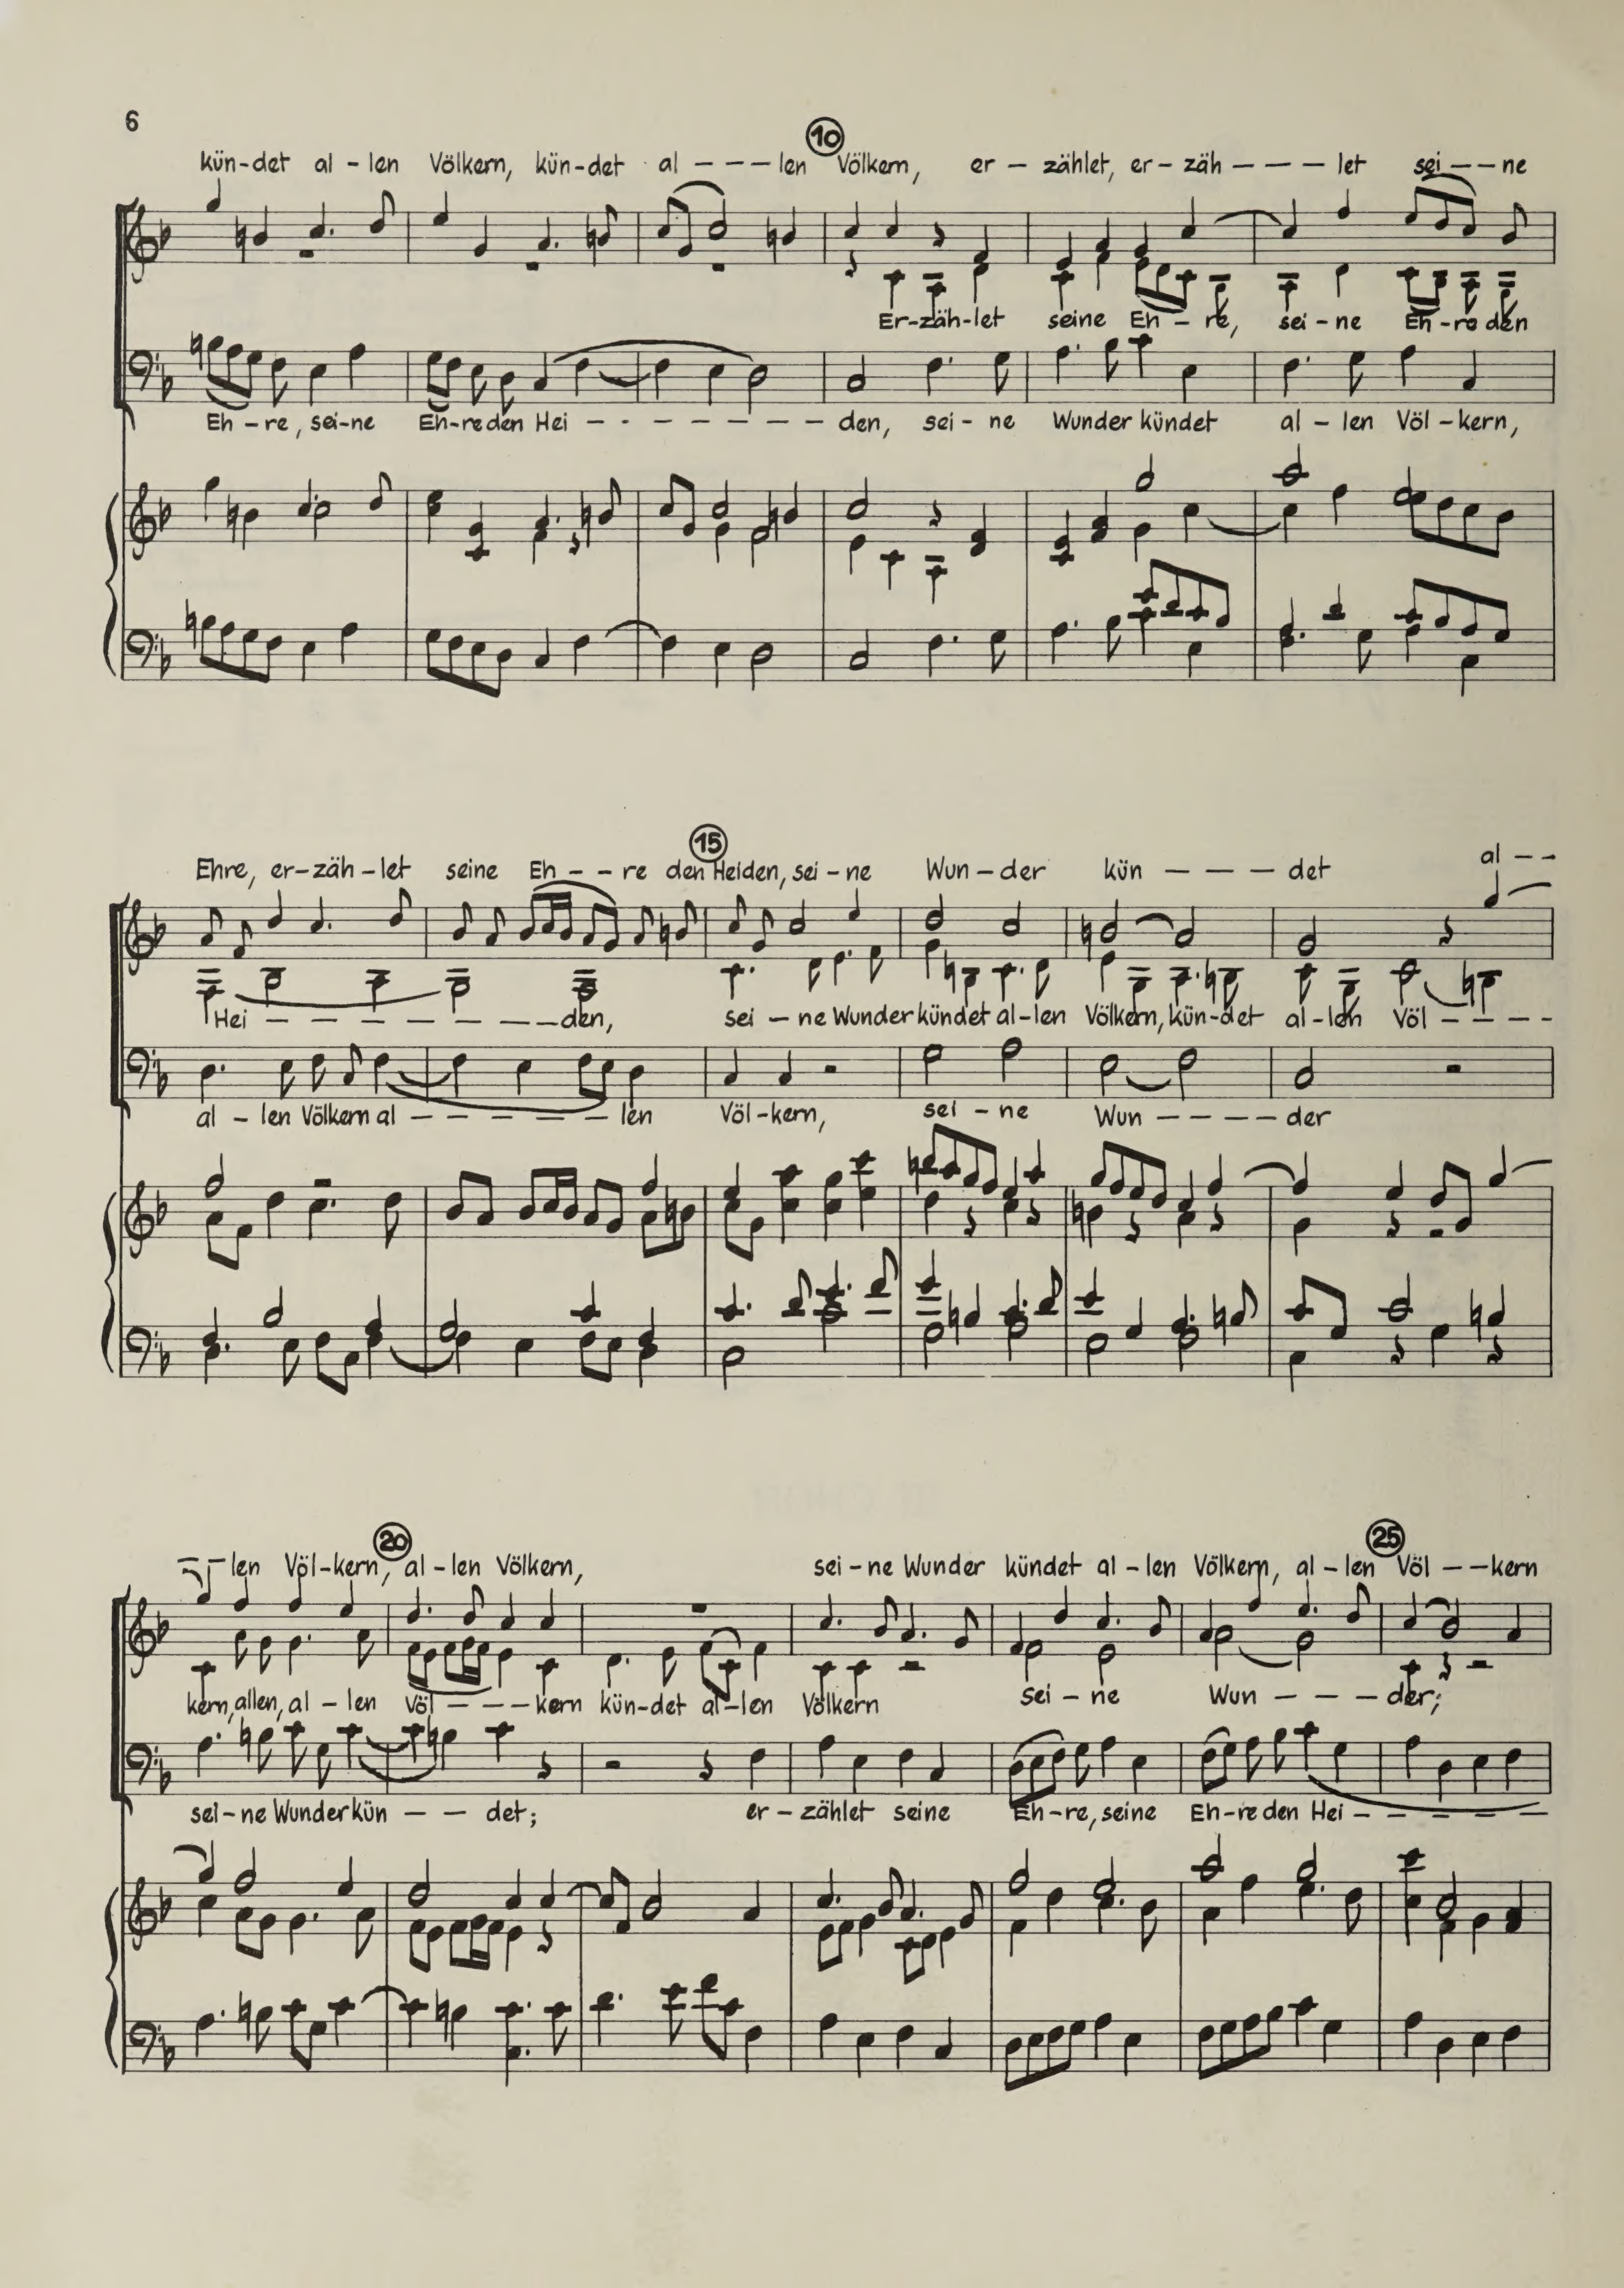 6
10
kün-det al - len Völkern, kün-det al - - - len Völkern, er - zählet, er - zäh - - - let sei - - ne
Er-zäh-let seine Eh - re, sei - ne Eh - re den
Eh - re, sei-ne Eh-re den Hei - - - - - - - - den, sei - ne Wunder kündet al - len Völ - kern,
15
Ehre, er-zäh-let seine Eh - - re den Heiden, sei - ne Wun - der kün - - - det al - -
Hei - - - - - - - den, sei - ne Wunder kündet al - len Völkern, kün-det al-len Völ - - - -
al - len Völkern al - - - - - - len Völ-kern, sei - ne Wun - - - - der
20 25
- - len Völ-kern, al - len Völkern, sei - ne Wunder kündet al - len Völkern, al - len Völ - - kern
kern, allen, al - len Völ - - - kern kün-det al-len Völkern sei - ne Wun - - - der;
sei - ne Wunder kün - - det; er - zählet seine Eh-re, seine Eh-re den Hei - - - - -